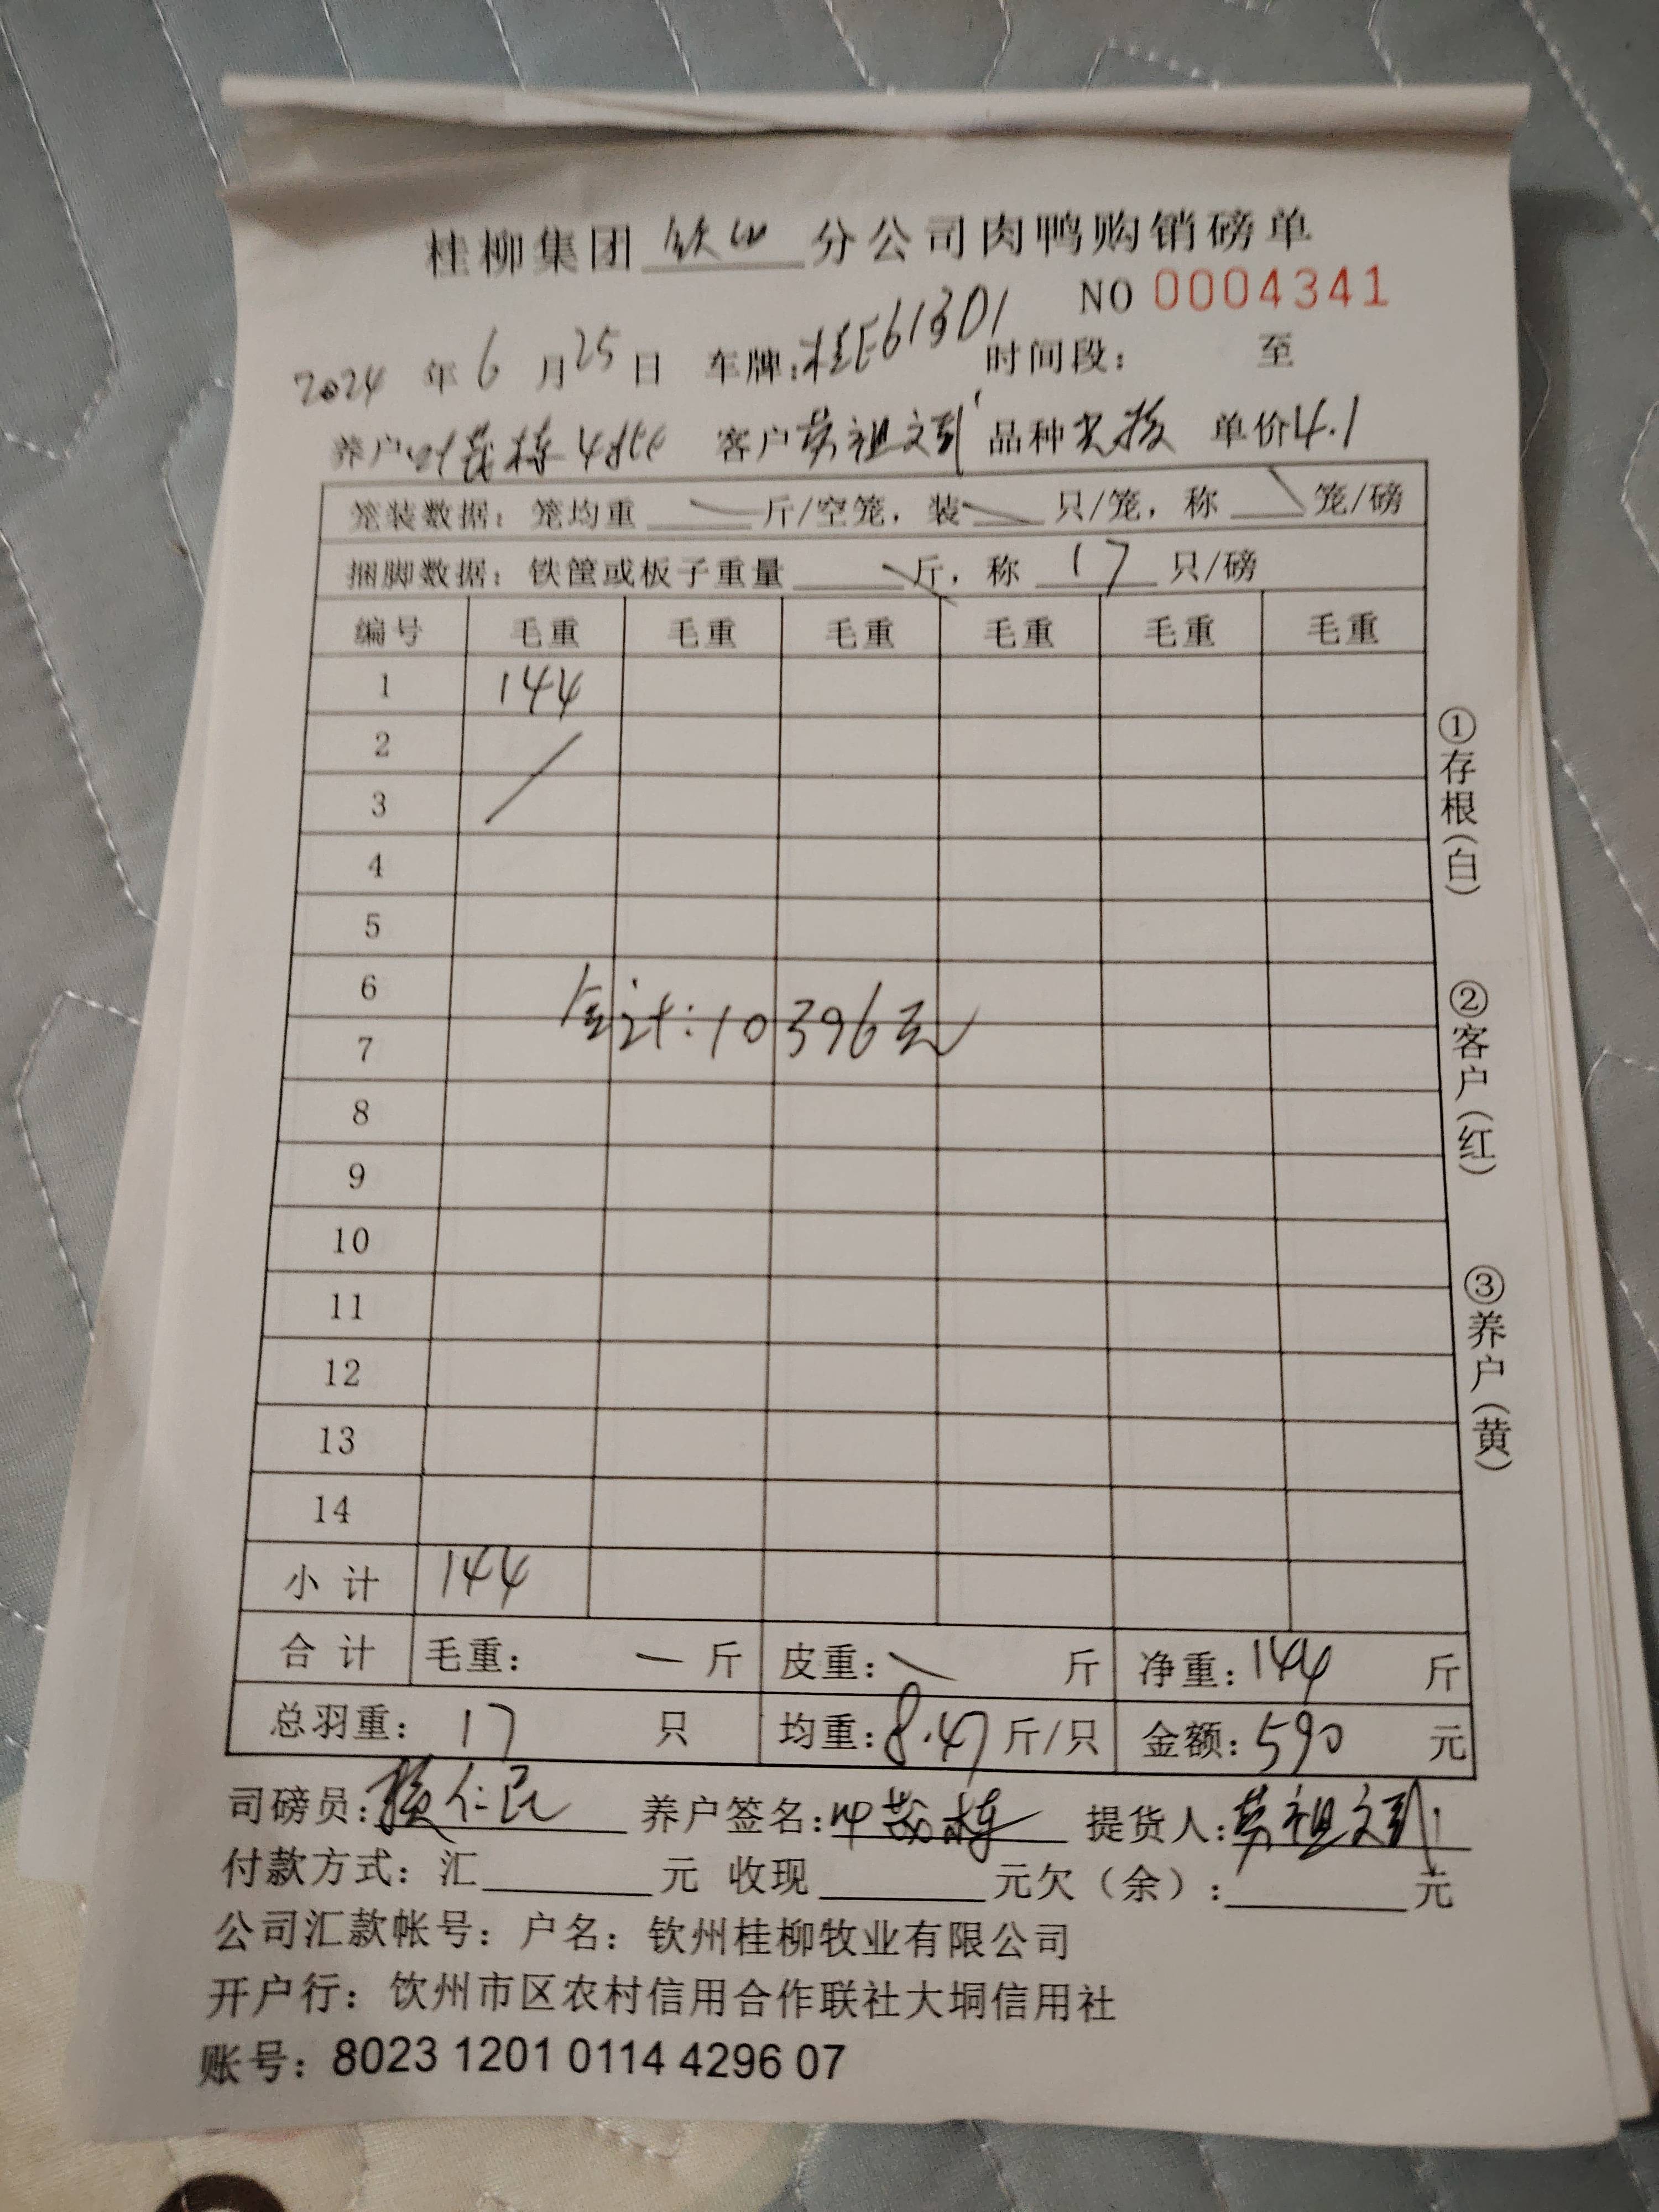 桂柳集团 钦州 分公司肉鸭购销磅单
NO 0004341
2024 年 6 月 25 日 车牌:桂E61301 时间段: 至
养户 客户 品种 单价4.1
笼装数据: 笼均重 斤/空笼, 装 只/笼, 称 笼/磅
捆脚数据: 铁筐或板子重量 斤, 称 17 只/磅
编号 毛重 毛重 毛重 毛重 毛重 毛重
1 144
2
3
4
5
6
合计:10396元
7
8
9
10
11
12
13
14
小 计 144
合 计 毛重: 一 斤 皮重: 斤 净重:144 斤
总羽重: 17 只 均重:8.47 斤/只 金额:590 元
司磅员: 仁民 养户签名: 提货人:
付款方式: 汇 元 收现 元欠(余): 元
公司汇款帐号: 户名: 钦州桂柳牧业有限公司
开户行: 钦州市区农村信用合作联社大垌信用社
账号: 8023 1201 0114 4296 07
①存根(白)
②客户(红)
③养户(黄)